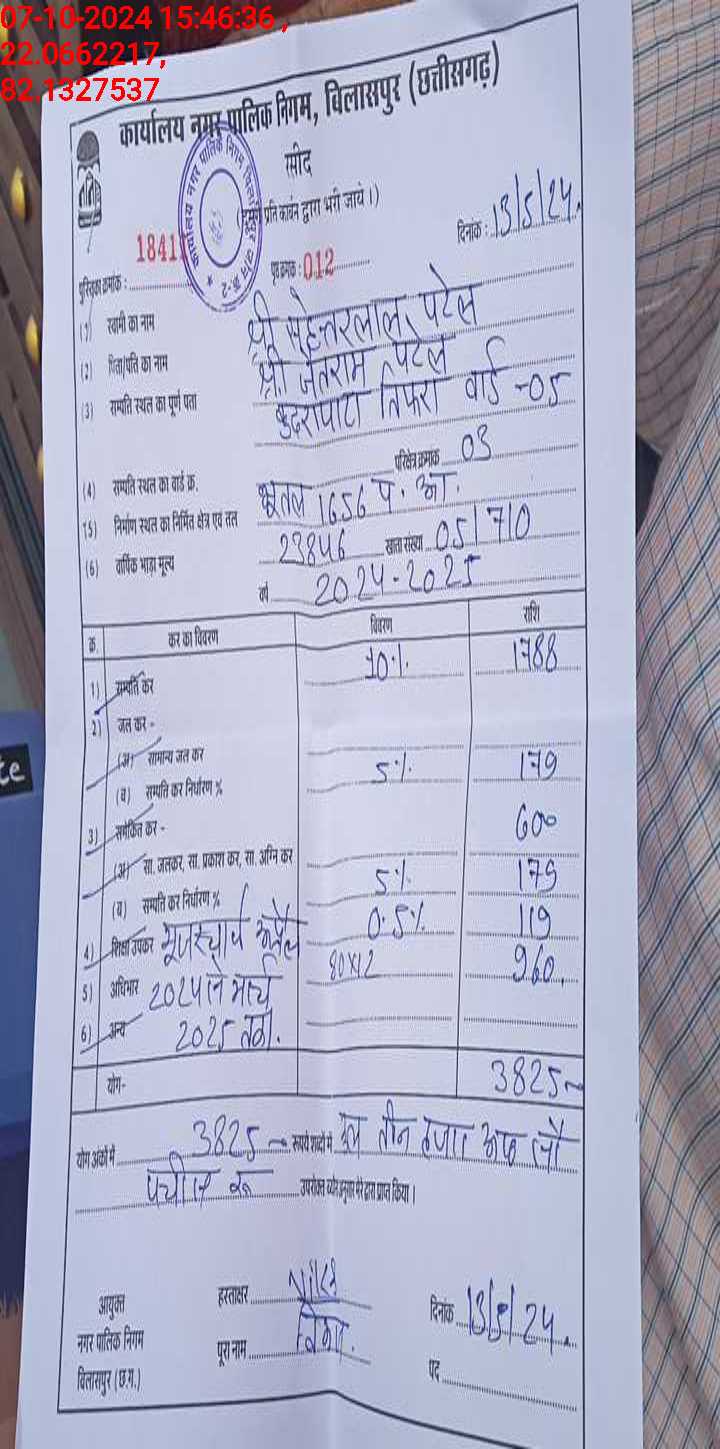 07-10-2024 15:46:36 ,
22.0662217,
82.1327537
कार्यालय नगर पालिक निगम, बिलासपुर (छत्तीसगढ़)
रसीद
प्रति कार्बन द्वारा भरी जाये।)
दिनांक : 13/5/24
पुस्तिका क्रमांक : 1841
पृ.क्रमांक : 012
(1) स्वामी का नाम श्री पटेल
(2) पिता/पति का नाम श्री जेतराम पटेल
(3) सम्पत्ति स्थल का पूर्ण पता तिफरा वार्ड -05
(4) सम्पत्ति स्थल का वार्ड क्र. परिक्षेत्र क्रमांक 03
15) निर्माण स्थल का निर्मित क्षेत्र एवं तल भूतल 1656 प. आ.
(6) वार्षिक भाड़ा मूल्य 23846 खाता संख्या 05/710
वर्ष 2024-2025
क्र. कर का विवरण विवरण राशि
1) सम्पत्ति कर 10% 1788
2) जल कर -
(अ) सामान्य जल कर
(ब) सम्पत्ति कर निर्धारण % 5% 179
3) समेकित कर - 600
(अ) सा. जलकर, सा. प्रकाश कर, सा. अग्नि कर
(ब) सम्पत्ति कर निर्धारण % 5% 179
4) शिक्षा उपकर 0.5% 119
5) अधिभार 2024 से मार्च 80X12 960
6) अन्य 2025 तक.
योग- 3825
योग अंकों में 3825 रूपये शब्दों में तीन हजार आठ सौ
पच्चीस रू उपरोक्त ब्यौरे अनुसार मेरे द्वारा प्राप्त किया।
आयुक्त
नगर पालिक निगम
बिलासपुर (छ.ग.)
हस्ताक्षर
पूरा नाम
दिनांक 13/5/24
पद